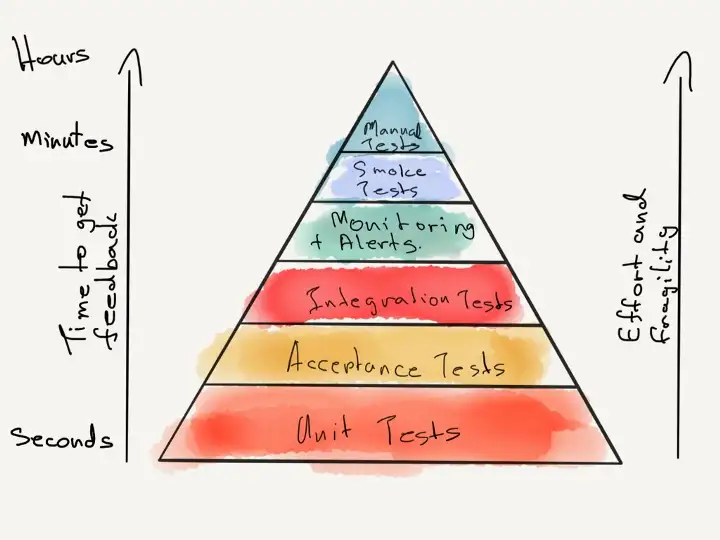 Hours
Minutes
Time to get
feedback
Seconds
Manual
Tests
Smoke
Tests
Monitoring
+ Alerts.
Integration Tests
Acceptance Tests
Unit Tests
Effort and
Fragility